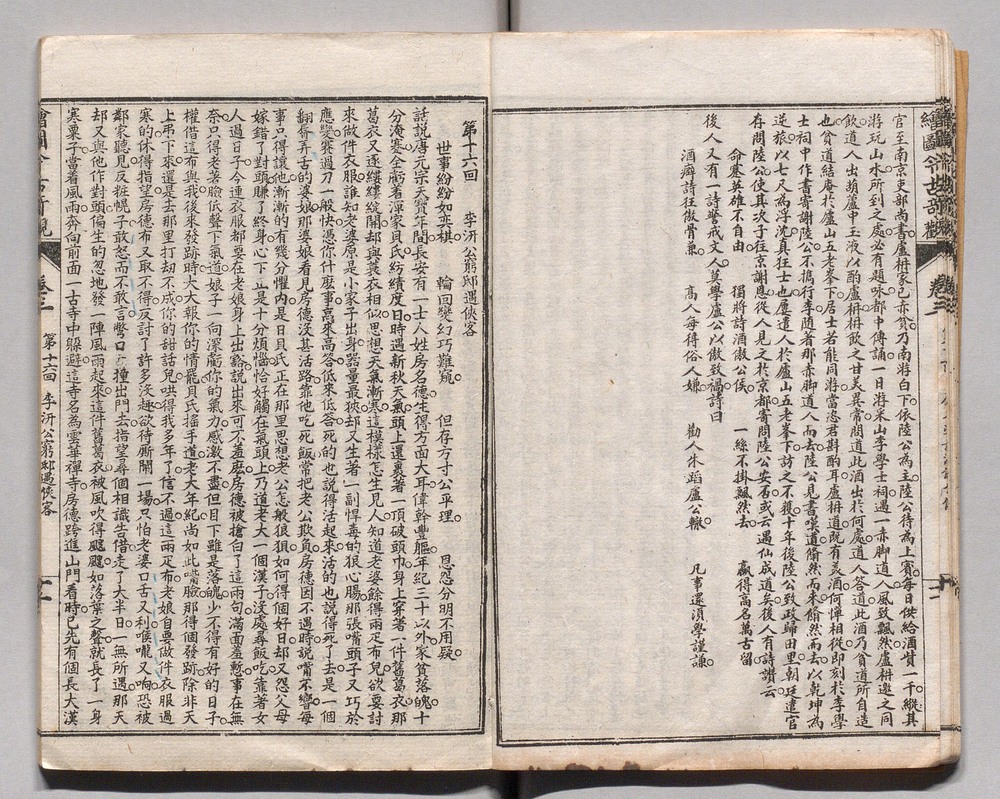 官至南京吏部尚書盧枏家已赤貧乃南將白下依陸公為主陸公待為上賓每日供給酒貲一千縱其
將玩山水所到之處必有題咏都中傳誦一日將采山李學士祠遇一赤脚道人風致飄然盧枏邀之同
飲道人出葫蘆中玉液以酌盧枏枏飲之甘美異常問道此酒出於何處道人答道此酒乃貧道所自造
也貧道結庵於廬山五老峯下居士若能同將當恣君斟酌耳盧枏道既有美酒何憚相從即刻於李學
士祠中作書寄謝陸公不攜行李隨着那赤脚道人而去陸公見書嘆道翛然而來翛然而去以乾坤為
逆旅以七尺為浮沈真狂士也屢遣人於廬山五老峯下訪之不獲十年後陸公致政歸田里朝廷遣官
存問陸公使其次子往京謝恩從人見之於京都寄問陸公安否或云遇仙成道矣後人有詩讚云
命蹇英雄不自由　獨將詩酒傲公侯　一絲不掛飄然去　贏得高名萬古留
後人又有一詩警戒文人莫學盧公以傲致禍詩曰
酒癖詩狂傲骨兼　高人每得俗人嫌　勸人休蹈盧公轍　凡事還須學謹謙
繪圖今古奇觀　卷三
第十六回　李汧公窮邸遇俠客
世事紛紛如奕棋　輪回變幻巧難窺　但存方寸公平理　恩怨分明不用疑
話說唐元宗天寶年間長安有一士人姓房名德生得方面大耳偉幹豐軀年紀三十以外家貧落魄十
分淹蹇全虧着渾家貝氏紡績度日時遇新秋天氣頭上還裹着一頂破頭巾身上穿著一件舊葛衣那
葛衣又逐縷縷綻開却與蓑衣相似思想天氣漸寒這模樣怎生見人知道老婆餘得兩疋布兒欲要討
來做件衣服誰知老婆原是小家子出身器量最狹却又生著一副悍毒的狠心腸那張嘴頭子又巧於
應變賽過刀一般快憑你什麼事高來高答低來低答死的也說得活起來活的也說得死了去是一個
翻脣弄舌的婆娘那婆娘看見房德沒甚活路靠他吃死飯常把老公欺負房德因不遇時說嘴不響每
事只得讓他漸漸的有幾分懼內是日貝氏正在那里思想老公怎般狼狽如何得個好日却又怨父母
嫁錯了對頭賺了終身心下正是十分煩惱恰好觸在氣頭上乃道老大一個漢子沒處尋飯吃靠著女
人過日子今連衣服都要在老娘身上出豁說出來可不羞麽房德被搶白了這兩句滿面羞慙事在無
奈只得老著臉低聲下氣道娘子一向深虧你的氣力感激不盡但目下雖是落魄少不得有好的日子
權借這布與我後來發跡時大大報你的情罷貝氏搖手道老大年紀尚如此嘴臉那得個發跡除非天
上弔下來還是去那里打劫不成你的甜話兒哄得我多年了信不過這兩疋布老娘自要做件衣服過
寒的休得指望房德布又取不得反討了許多沒趣欲待廝鬧一場只怕老婆口舌又利喉嚨又响恐被
鄰家聽見反粧幌子敢怒而不敢言彆口氣撞出門去指望尋個相識告借走了大半日一無所遇那天
却又與他作對頭偏生的忽地發一陣風雨起來這件舊葛衣被風吹得颼颼如落葉之聲就長了一身
寒栗子當着風雨奔向前面一古寺中躲避這寺名為雲華禪寺房德跨進山門看時已先有個長大漢
繪圖今古奇觀　卷三　第十六回　李汧公窮邸遇俠客